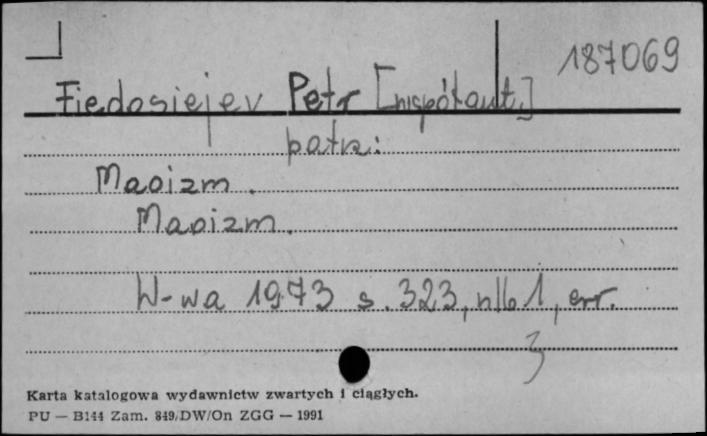 187069
Fiedosiejev Petr [współaut.]
patrz:
Maoizm.
Maoizm.
W-wa 1973 s. 323, nlb 1, err.
3
Karta katalogowa wydawnictw zwartych i ciągłych.
PU — B144 Zam. 849/DW/On ZGG — 1991